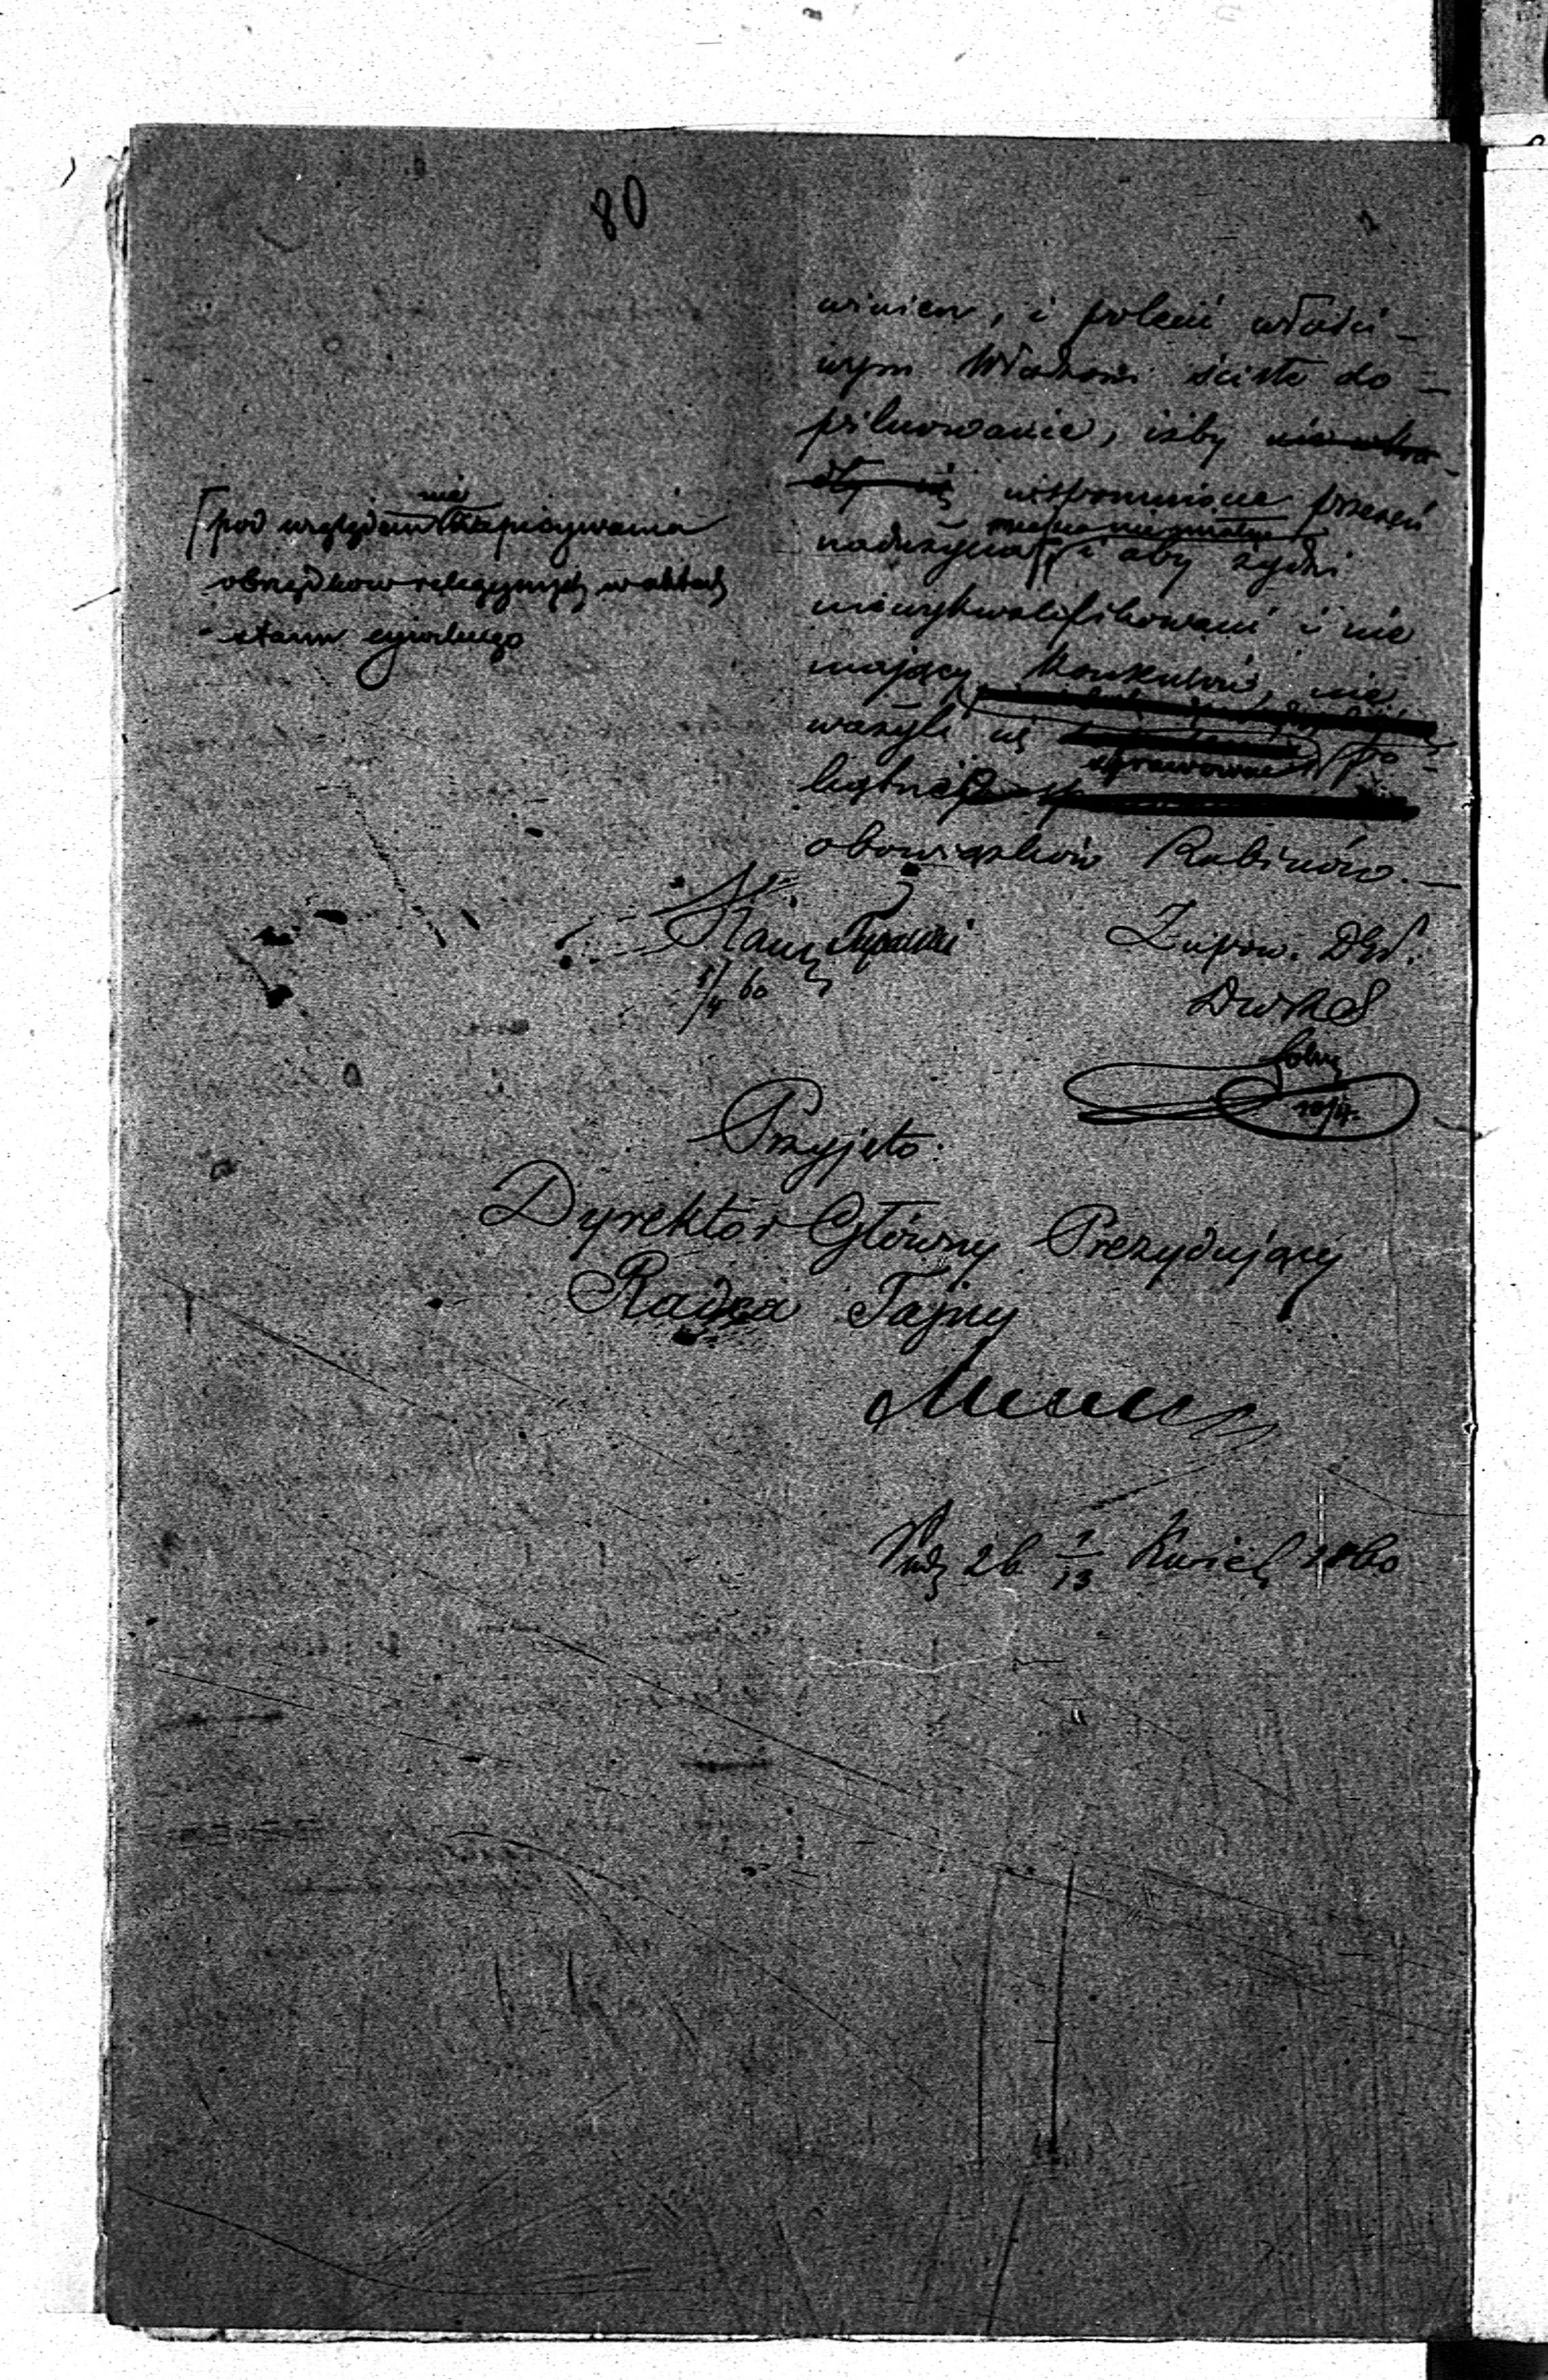 80
winien, i polecić właści-
wym Władzom ścisłe do-
pilnowanie, iżby nie wkra-
dły się wspomnione przezeń
nadużycia i aby żydzi
niewykwalifikowani i nie
mający konkluzów, nie
ważyli się
sprawować po-
kątnie
obowiązków Rabinów.—
[pod względem nie zapisywania
obrzędów religijnych w aktach
stanu cywilnego
5/4 60
Zupow. DGł.
DWRS
10/4.
Przyjęto:
Dyrektor Główny Prezydujący
Radca Tajny
26 1/13 Kwiet 1860